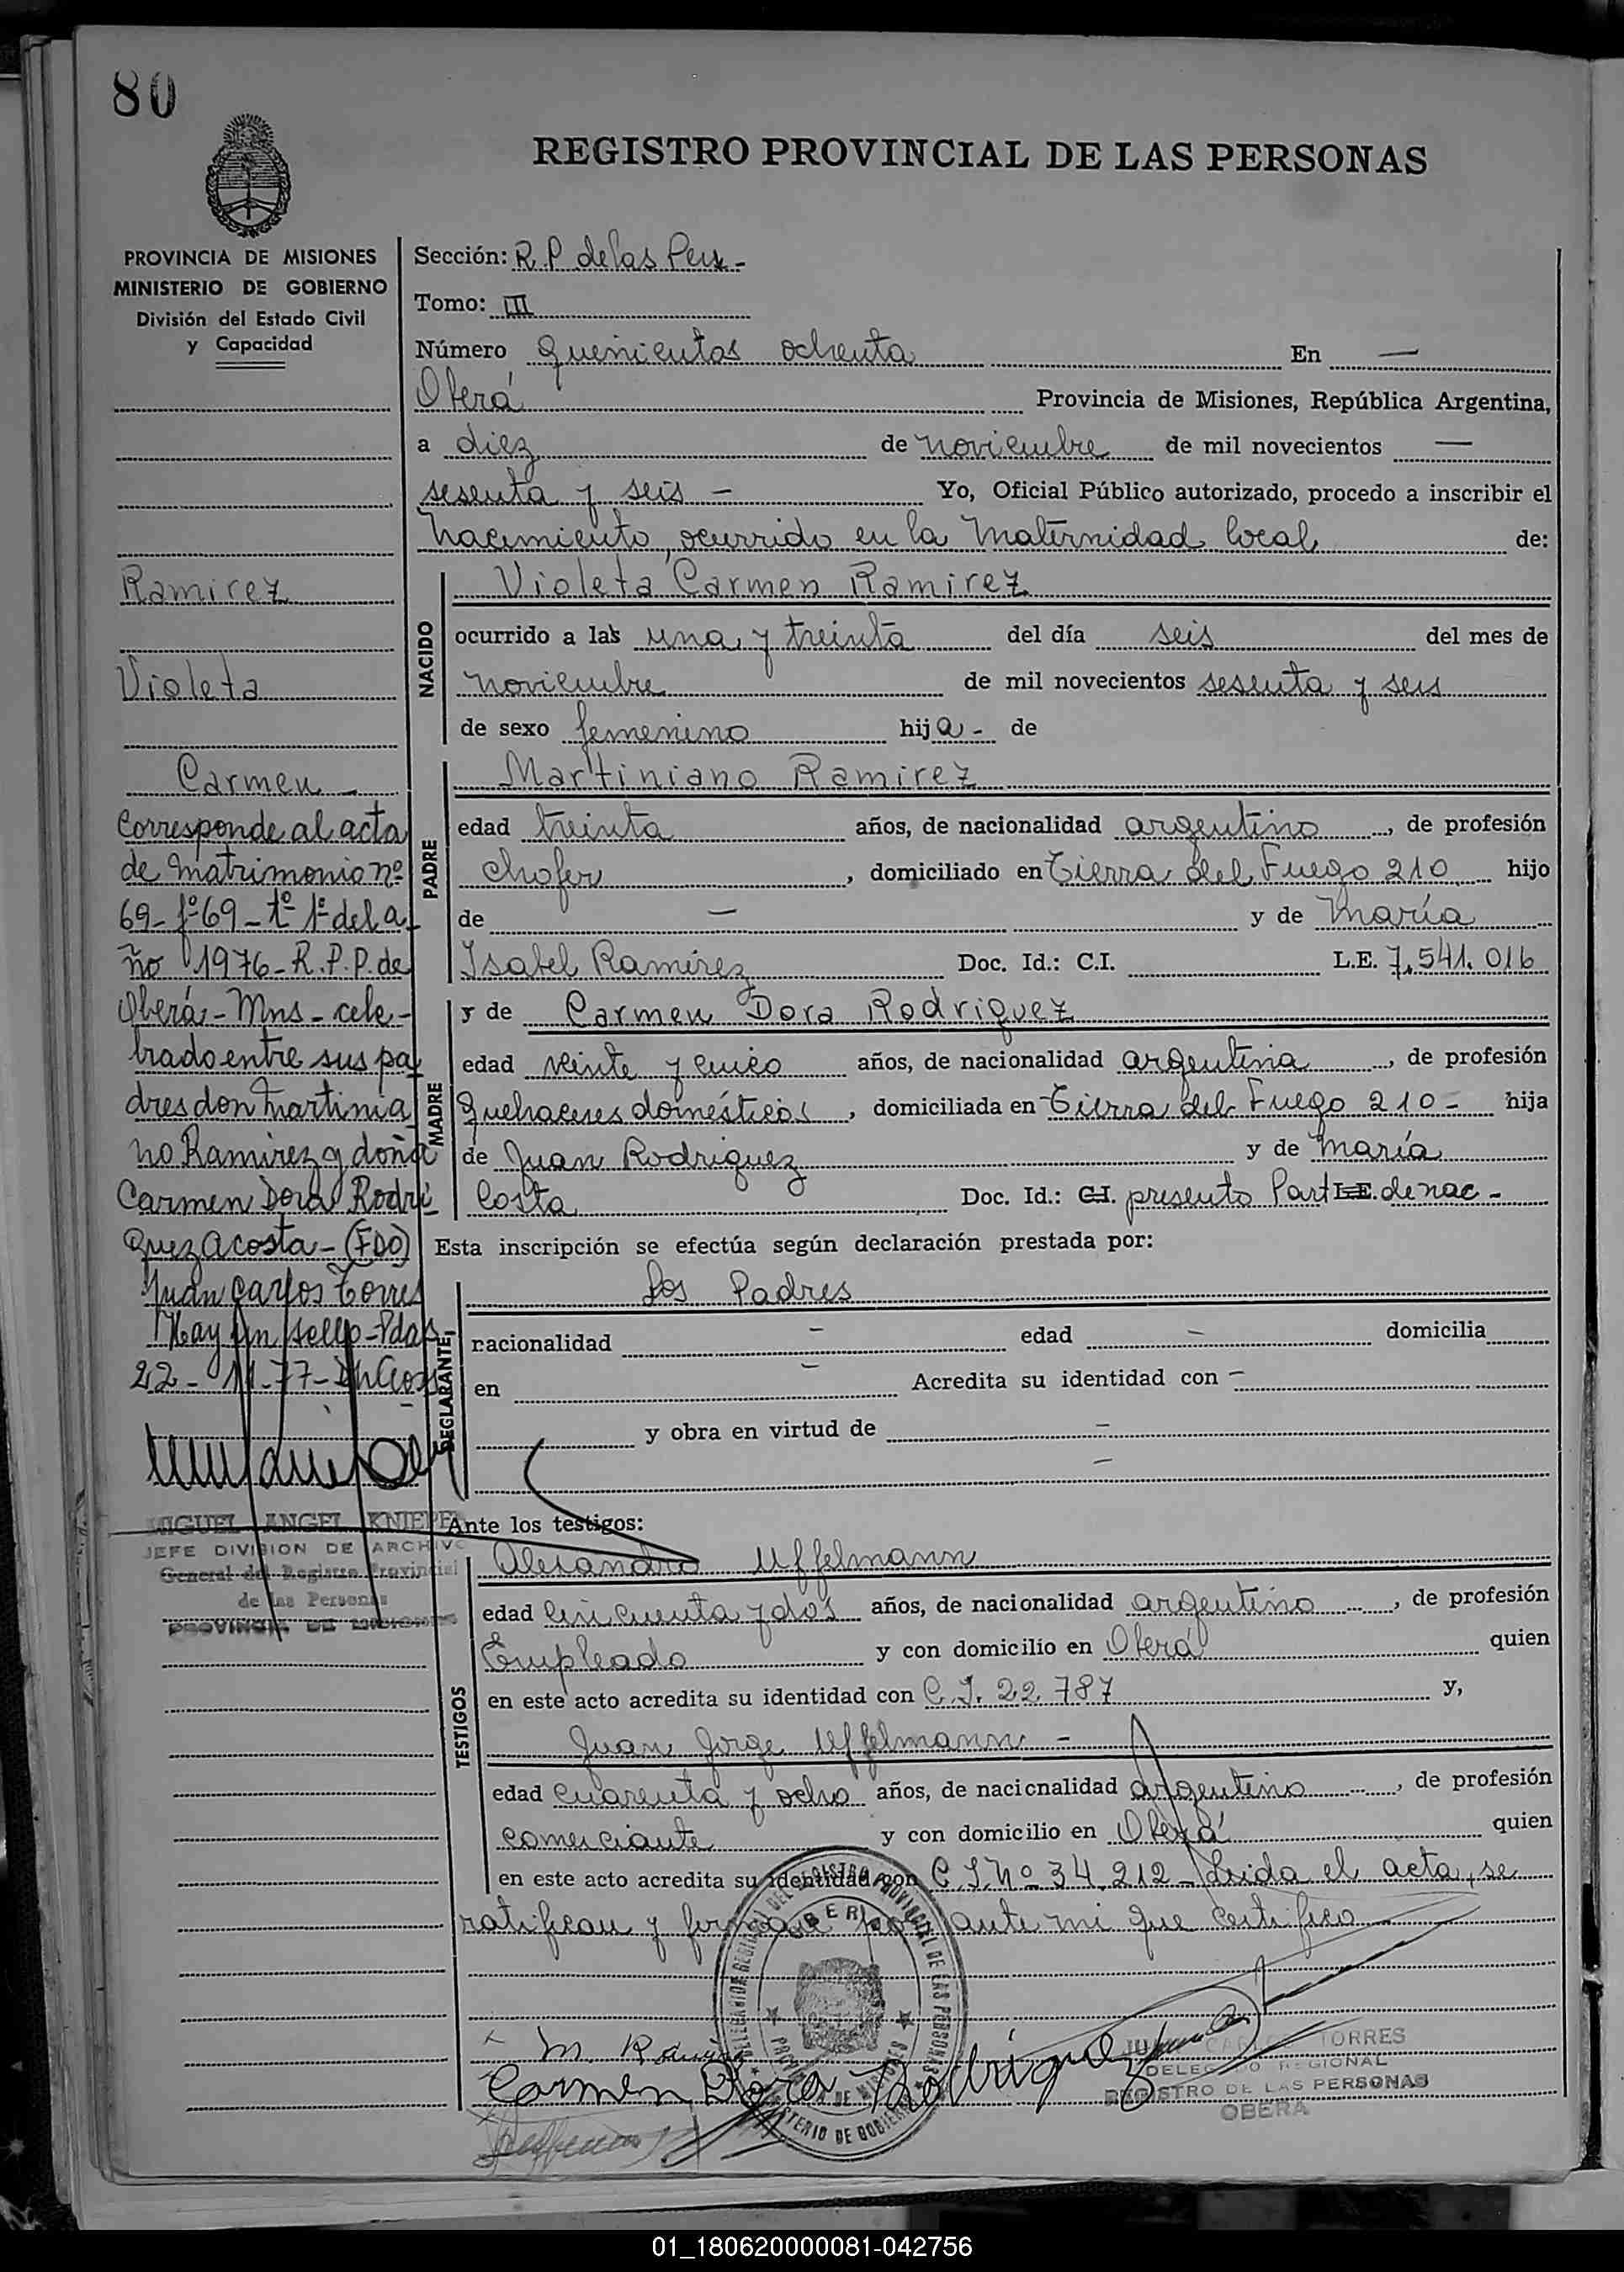 80
REGISTRO PROVINCIAL DE LAS PERSONAS
PROVINCIA DE MISIONES
MINISTERIO DE GOBIERNO
División del Estado Civil
y Capacidad
Ramirez
Violeta
Carmen -
Corresponde al acta
de matrimonio nº
69 - fº 69 - tº 1º del a
ño 1976 - R.P.P. de
Oberá - Mns - cele-
brado entre sus pa
dres don Martinia
no Ramirez y doña
Carmen Dora Rodri
guez Acosta - (FDO)
Juan Carlos Torres
Hay un sello - Pdas
22 - 11 - 77 -
MIGUEL ANGEL
JEFE DIVISION DE ARCHIVO
General del Registro Provincial
de las Personas
PROVINCIA DE MISIONES
Sección: R.P. de las Pers -
Tomo: III
Número quinientos ochenta En —
Oberá Provincia de Misiones, República Argentina,
a diez de noviembre de mil novecientos —
sesenta y seis - Yo, Oficial Público autorizado, procedo a inscribir el
nacimiento, ocurrido en la Maternidad local de:
NACIDO
Violeta Carmen Ramirez
ocurrido a las una y treinta del día seis del mes de
noviembre de mil novecientos sesenta y seis
de sexo femenino hija - de
PADRE
Martiniano Ramirez
edad treinta años, de nacionalidad argentino, de profesión
chofer, domiciliado en Tierra del Fuego 210 hijo
de — y de María
Isabel Ramirez Doc. Id.: C.I. L.E. 7.541.016
MADRE
y de Carmen Dora Rodriguez
edad veinte y cinco años, de nacionalidad argentina, de profesión
quehaceres domésticos, domiciliada en Tierra del Fuego 210 - hija
de Juan Rodriguez y de María
Costa Doc. Id.: C.I. presento Part L.E. de nac -
Esta inscripción se efectúa según declaración prestada por:
DECLARANTE
Los Padres
racionalidad — edad — domicilia
en — Acredita su identidad con —
y obra en virtud de —
—
Ante los testigos:
TESTIGOS
Alejandro Uffelmann
edad cincuenta y dos años, de nacionalidad argentino, de profesión
Empleado y con domicilio en Oberá quien
en este acto acredita su identidad con C.I. 22.787 y,
Juan Jorge Uffelmann -
edad cuarenta y ocho años, de nacionalidad argentino, de profesión
comerciante y con domicilio en Oberá quien
en este acto acredita su identidad con C.I. Nº 34.212 - Leida el acta, se
ratifican y firman por ante mi que certifico
M. Ramirez
Carmen Dora Rodriguez
JUAN CARLOS TORRES
DELEGADO REGIONAL
REGISTRO DE LAS PERSONAS
OBERA
01_180620000081-042756